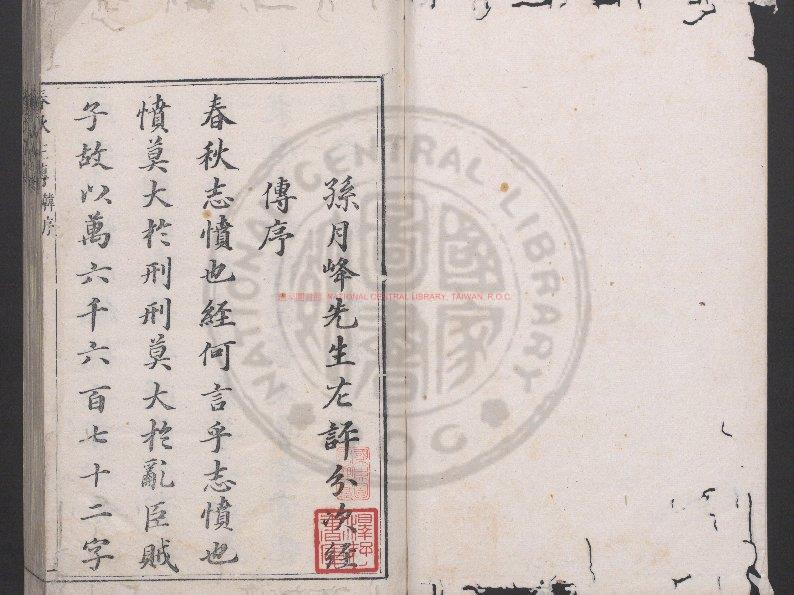 孫月峰先生左評分次經
傳序
春秋志憤也經何言乎志憤也
憤莫大於刑刑莫大於亂臣賊
子故以萬六千六百七十二字
春秋左傳
韓序
NATIONAL CENTRAL LIBRARY, TAIWAN, R.O.C.
NATIONAL CENTRAL LIBRARY
ROC
國家圖書館